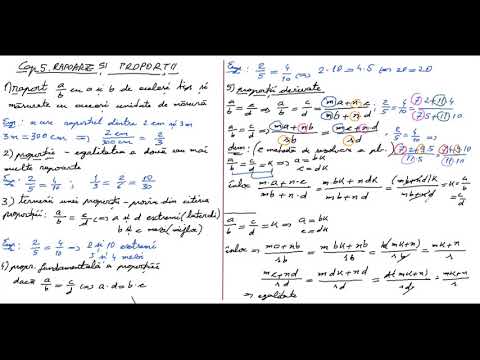 Cap 5. RAPOARTE ȘI PROPORȚII
1) raport a/b cu a și b de același tip și
măsurate cu aceeași unitate de măsură
Ex: x care raportul dintre 2 cm și 3 m
3 m = 300 cm ⇒ 2 cm / 300 cm = 2/3
2) proporție - egalitatea a două sau mai
multe rapoarte
Ex: 2/5 = 4/10 ; 1/3 = 2/6 = 10/30
3) termenii unei proporții - provin din citirea
proporției: a/b = c/d ⇔ a și d extremi (laterali)
b și c mezi (mijloc)
Ex: 2/5 = 4/10 ⇒ 2 și 10 extremi
5 și 4 mezi
4) propr. fundamentală a proporției
dacă a/b = c/d ⇔ a·d = b·c
Ex: 2/5 = 4/10 ⇔ 2·10 = 4·5 ⇔ 20 = 20
5) proporții derivate
a/b = c/d ⇒ a/b = c/d = (m a + n·c)/(m b + n·d)
2/5 = 4/10 = (7·2 + 11·4)/(7·5 + 11·10)
a/b = c/d ⇒ (m a + n b)/(s b) = (m c + n d)/(s d)
2/5 = 4/10 ⇒
dem: (e metodă de rezolvare a pb.)
a/b = c/d = k ⇒ a = bk
c = dk
înloc (m a + n·c)/(m b + n·d) = (m bk + n dk)/(m b + n d) = (mb + nd)k/(mb + nd) = k = a/b = c/d
a/b = c/d = k ⇒ a = bk
c = dk
înloc ⇒ (m a + n b)/(s b) = (m bk + n b)/(s b) = b(mk + n)/(s b) = (mk + n)/s
(m c + n d)/(s d) = (m dk + n d)/(s d) = d(mk + n)/(s d) = (mk + n)/s
⇒ egalitate